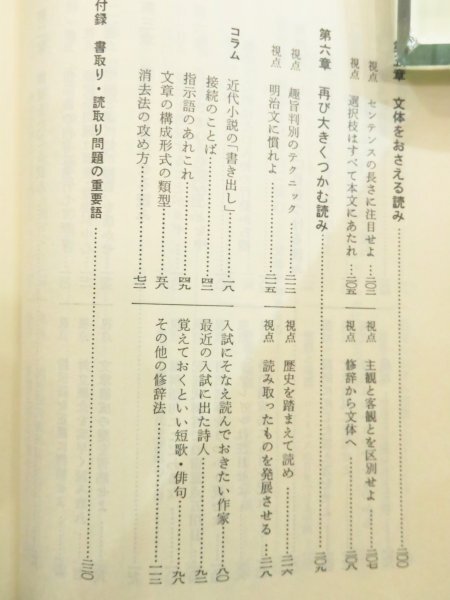 第五章 文体をおさえる読み……二〇〇
視点 センテンスの長さに注目せよ……二〇二
視点 選択枝はすべて本文にあたれ……二〇五
視点 主観と客観とを区別せよ……二〇七
視点 修辞から文体へ……二〇八
第六章 再び大きくつかむ読み……二〇九
視点 趣旨判別のテクニック……二一二
視点 明治文に慣れよ……二一五
視点 歴史を踏まえて読め……二一六
視点 読み取ったものを発展させる……二一八
コラム
近代小説の「書き出し」……一八
接続のことば……四二
指示語のあれこれ……四九
文章の構成形式の類型……五八
消去法の攻め方……七二
入試にそなえ読んでおきたい作家……八〇
最近の入試に出た詩人……九二
覚えておくといい短歌・俳句……九八
その他の修辞法……一一二
付録 書取り・読取り問題の重要語……二二〇